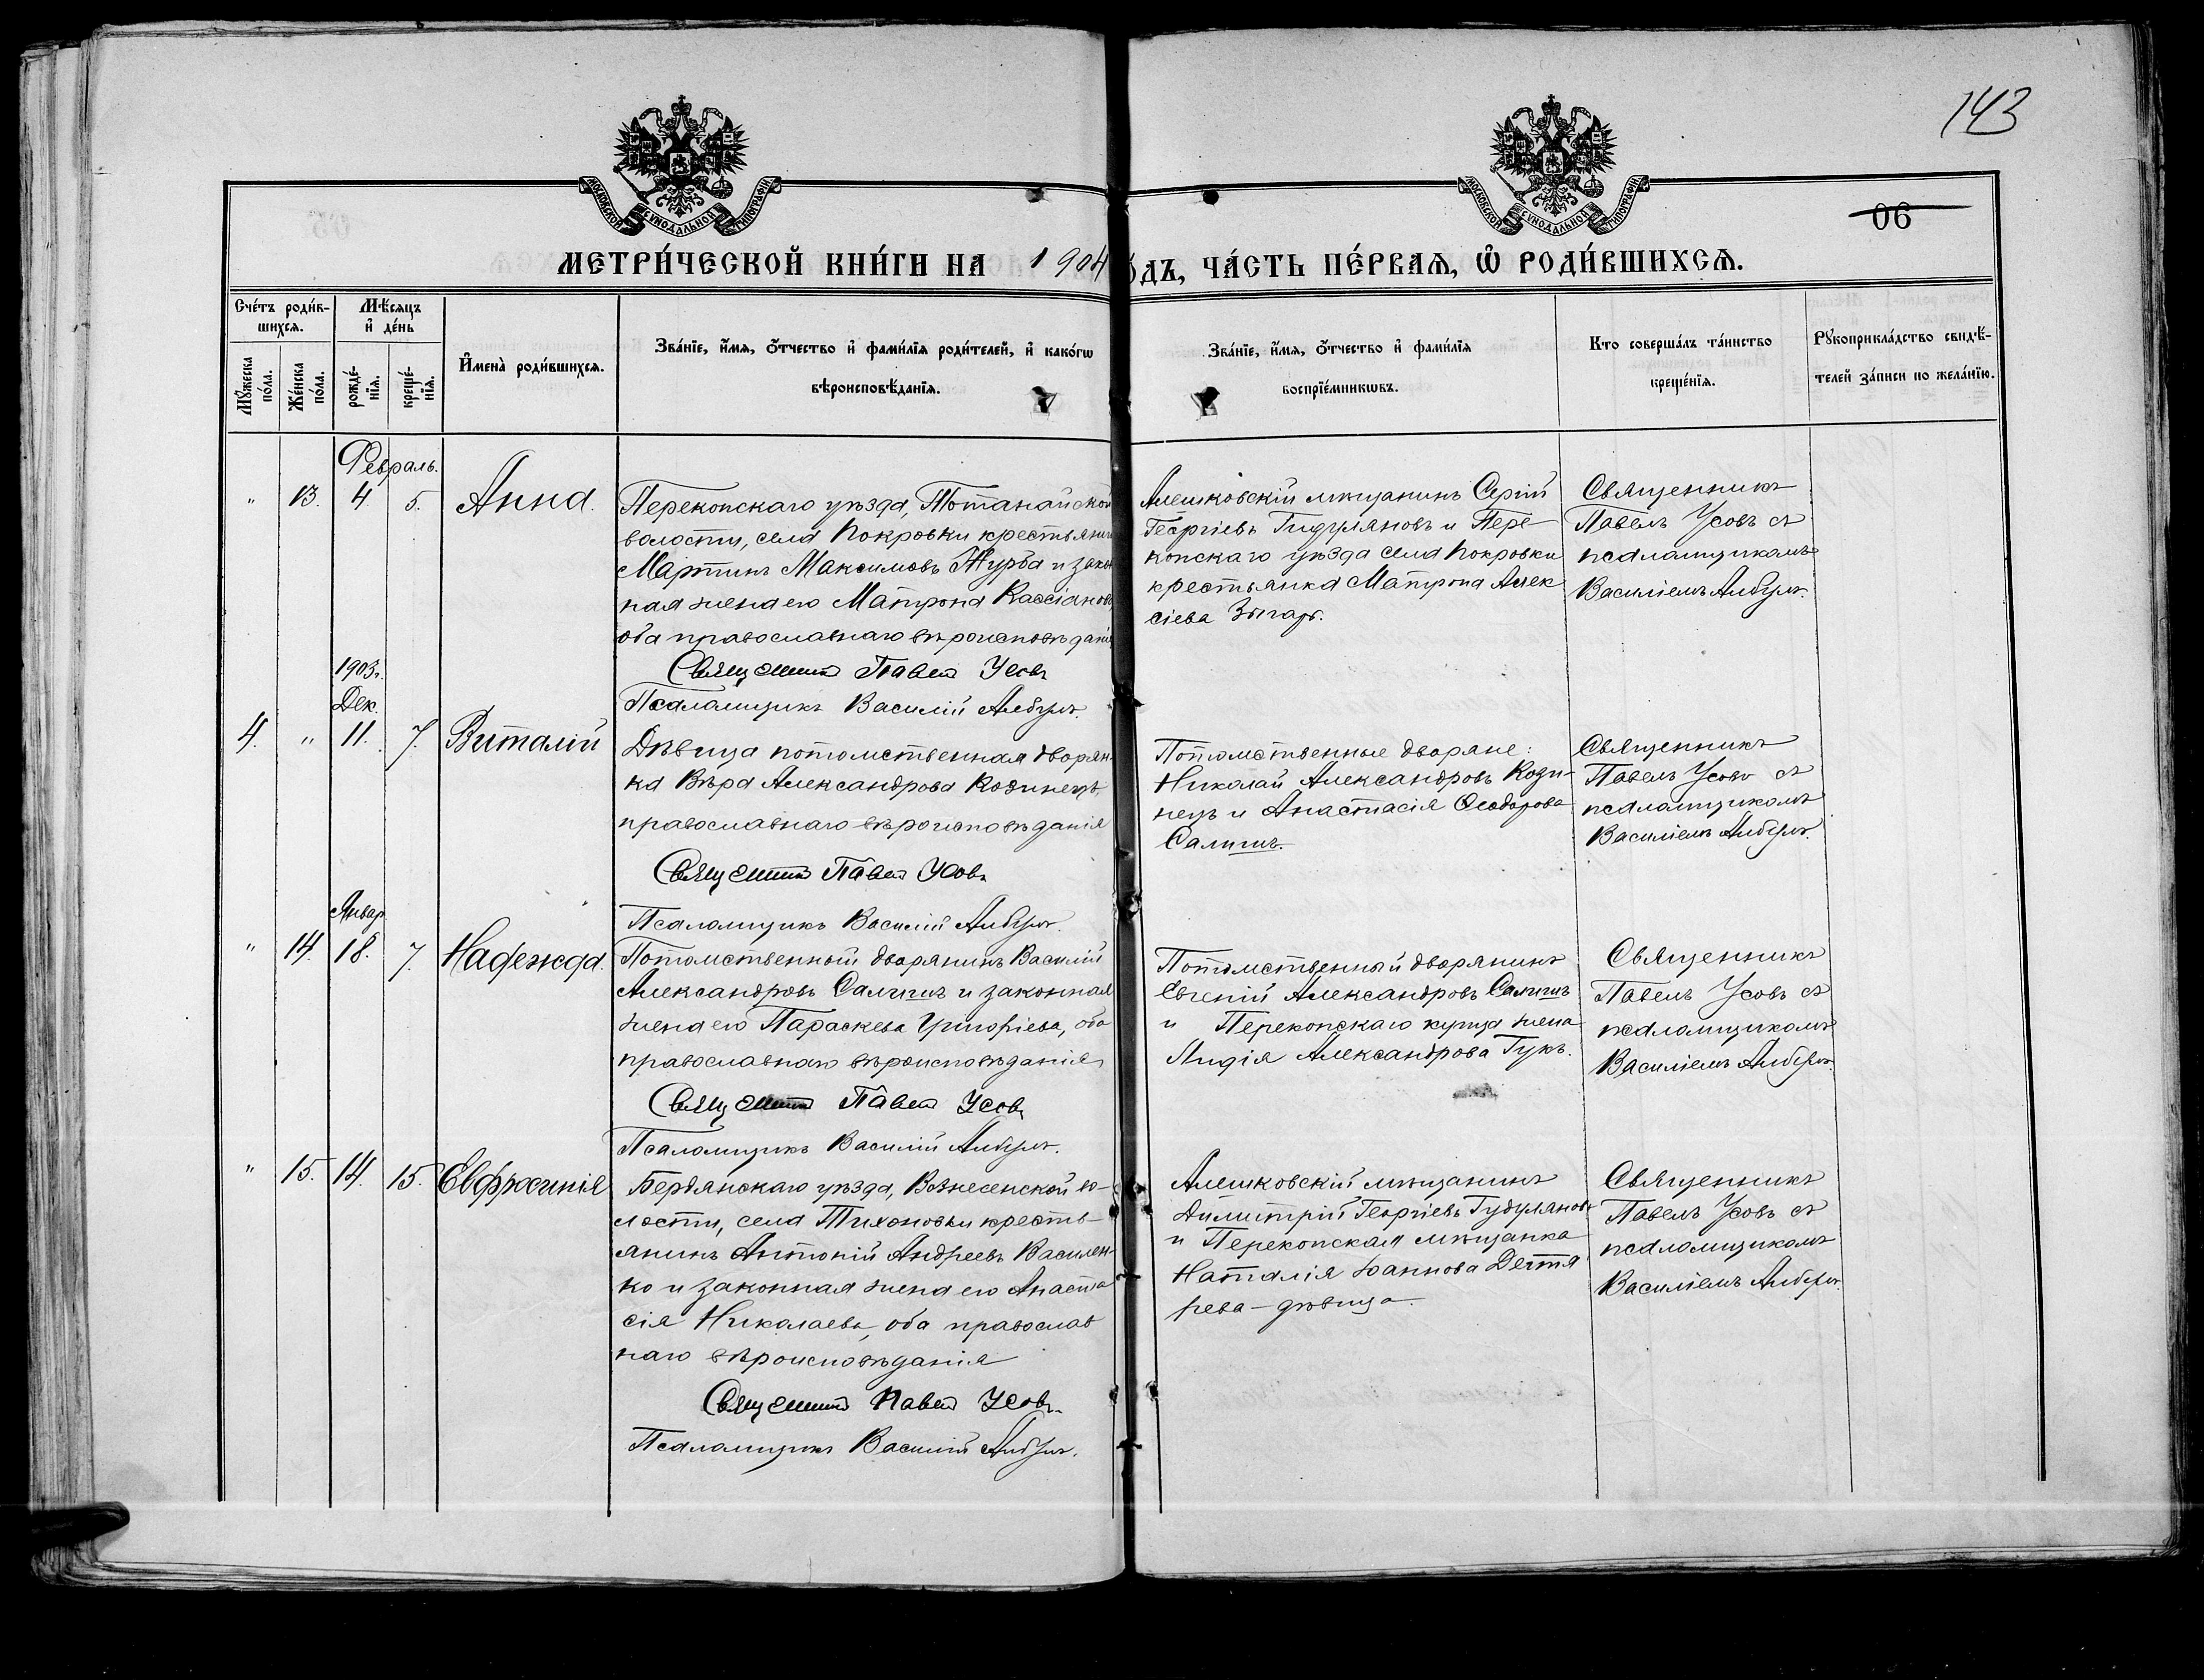 143
06
МОСКОВСКОЙ СѴНОДАЛЬНОЙ ТИПОГРАФІИ
МОСКОВСКОЙ СѴНОДАЛЬНОЙ ТИПОГРАФІИ
МЕТРИ́ЧЕСКОЙ КНИ́ГИ НА 1904
О́ДЪ, ЧА́СТЬ ПЕ́РВАѦ, Ѽ РОДИ́ВШИХСѦ.
Сче́тъ роди́в-
шихсѧ.
Мꙋ́жеска
по́ла.
Же́нска
по́ла.
Мѣ́сѧцъ
и҆ де́нь
рожде́-
нїѧ.
креще́-
нїѧ.
И҆мена̀ роди́вшихсѧ.
Зва́нїе, и҆́мѧ, ѻ҆́тчество и҆ фами́лїѧ роди́телей, и҆ како́гѡ
вѣроисповѣ́данїѧ.
Зва́нїе, и҆́мѧ, ѻ҆́тчество и҆ фами́лїѧ
воспрїе́мникѡвъ.
Кто соверша́лъ та́инство
креще́нїѧ.
Рꙋкоприкла́дство свидѣ́-
телей за́писи по жела́нїю.
Февраль.
" 13. 4. 5. Анна.
Перекопскаго уѣзда,
волости, села Покровки крестьянин
Мартинъ Максимовъ Журба и закон
ная жена его Матрона Кассіанова
оба православнаго вѣроисповѣданія
Священникъ Павелъ Усовъ
Псаломщикъ Василій
Алешковскій мѣщанинъ Сергій
Георгіевъ Гидуляновъ и Пере-
копскаго уѣзда села Покровки
крестьянка Матрона Алек
сіева
Священникъ
Павелъ Усовъ съ
псаломщикомъ
Василіемъ
1903 г.
Дек.
4. " 11. 7. Виталій
Дѣвица потомственная дворян-
ка Вѣра Александрова Козинецъ,
православнаго вѣроисповѣданія
Священникъ Павелъ Усовъ
Псаломщикъ Василій
Потомственные дворяне:
Николай Александровъ Кози-
нецъ и Анастасія Ѳеодорова
Священникъ
Павелъ Усовъ съ
псаломщикомъ
Василіемъ
Январ
" 14. 18. 7. Надежда.
Потомственный дворянинъ Василій
Александровъ и законная
жена его Параскева Григоріева, оба
православнаго вѣроисповѣданія
Священникъ Павелъ Усовъ
Псаломщикъ Василій
Потомственный дворянинъ
Евгеній Александровъ
и Перекопскаго купца жена
Лидія Александрова Гукъ.
Священникъ
Павелъ Усовъ съ
псаломщикомъ
Василіемъ
" 15. 14. 15. Евфросинія
Бердянскаго уѣзда, Вознесенской во-
лости, села Тихоновки кресть-
янинъ Антоній Андреевъ Василен-
ко и законная жена его Анаста
сія Николаева, оба православ
наго вѣроисповѣданія
Священникъ Павелъ Усовъ
Псаломщикъ Василій
Алешковскій мѣщанинъ
Димитрій Георгіевъ Гудуляновъ
и Перекопская мѣщанка
Наталія Іоаннова Дегтя
рева – дѣвица.
Священникъ
Павелъ Усовъ съ
псаломщикомъ
Василіемъ